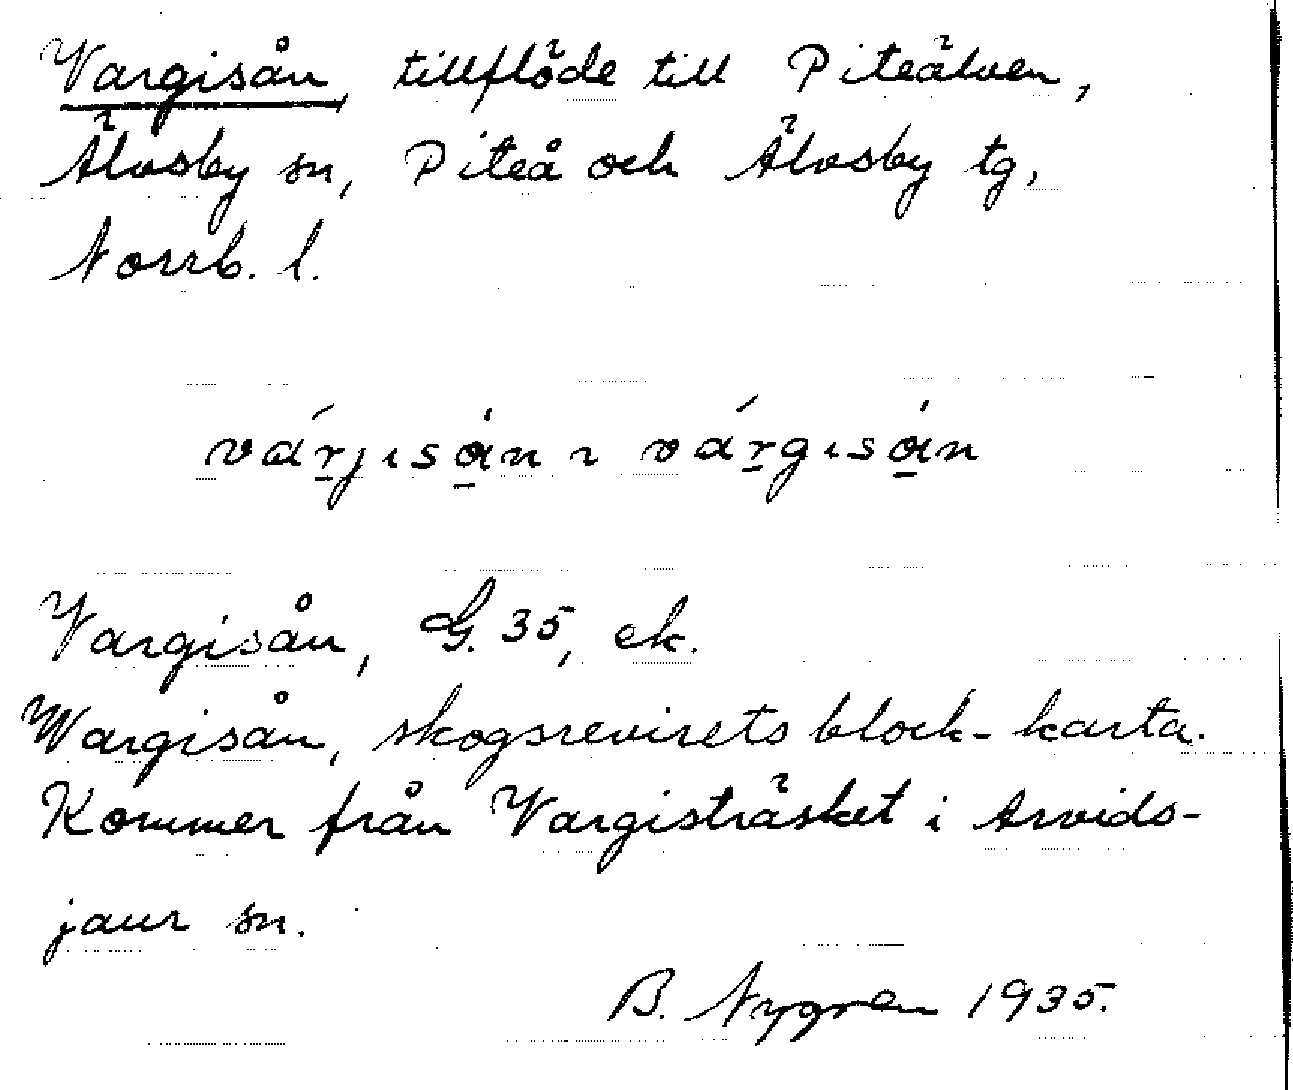 Vargisån, tillflöde till Piteälven,
Älvsby sn, Piteå och Älvsby tg,
Norrb. l.
várjısån ı várgısån
Vargisån, G. 35, ek.
Wargisån, skogsrevirets block-karta.
Kommer från Vargisträsket i Arvids-
jaur sn.
B. Nygren 1935.